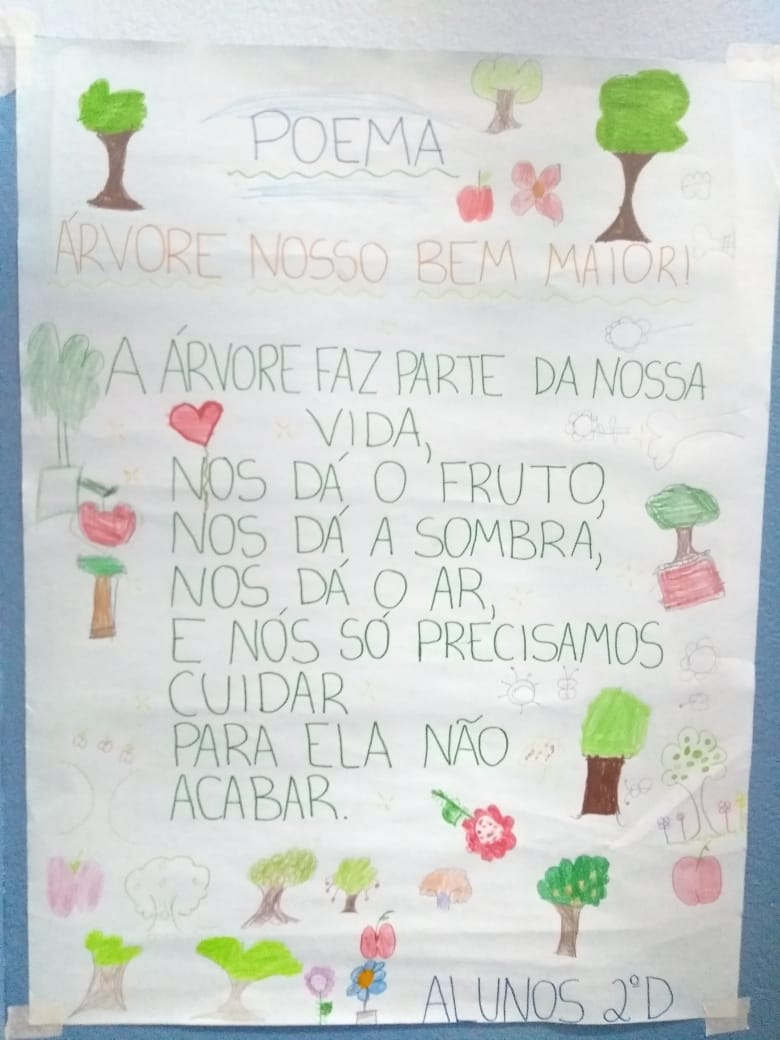 POEMA
ÁRVORE NOSSO BEM MAIOR!
A ÁRVORE FAZ PARTE DA NOSSA
VIDA,
NOS DÁ O FRUTO,
NOS DÁ A SOMBRA,
NOS DÁ O AR,
E NÓS SÓ PRECISAMOS
CUIDAR
PARA ELA NÃO
ACABAR.
ALUNOS 2ºD